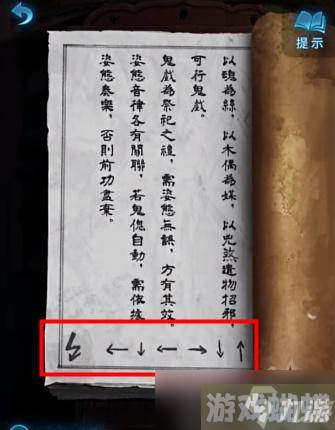 提示
以魂為絲，以木偶為媒，以兇煞遺物招邪，
可行鬼戲。
鬼戲為祭祀之禮，需姿態無誤，方有其效。
姿態音律各有關聯，若鬼傀自動，需依據
姿態奏樂，否則前功盡棄。
↑↓→←↓←
游戏蝴蝶